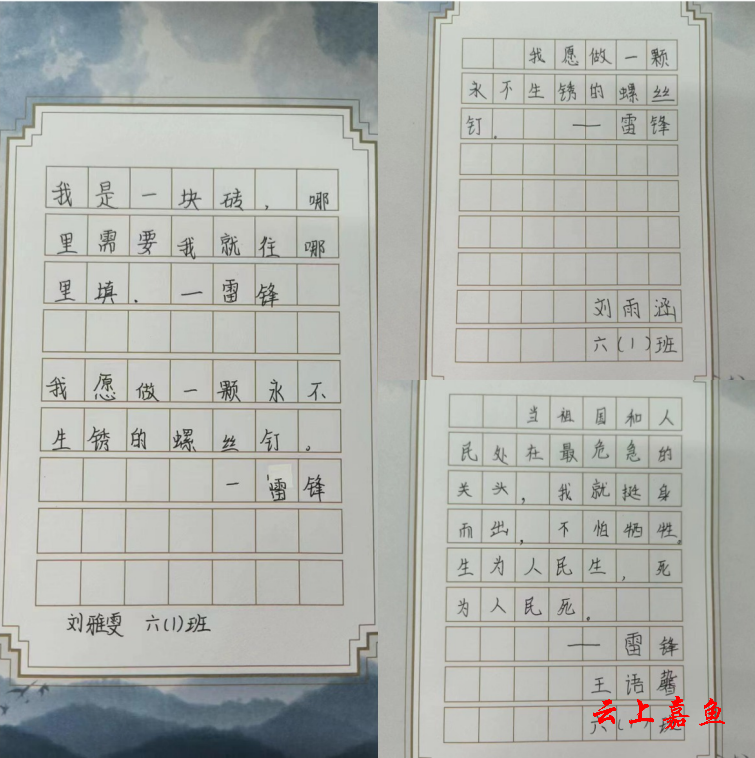 我是一块砖，哪
里需要我就往哪
里填．一雷锋
我愿做一颗永不
生锈的螺丝钉。
一雷锋
刘雅雯 六(1)班
我愿做一颗
永不生锈的螺丝
钉。——雷锋
刘雨涵
六(1)班
当祖国和人
民处在最危急的
关头，我就挺身
而出，不怕牺牲。
生为人民生，死
为人民死。
——雷锋
王语
六(1)班
云上嘉鱼